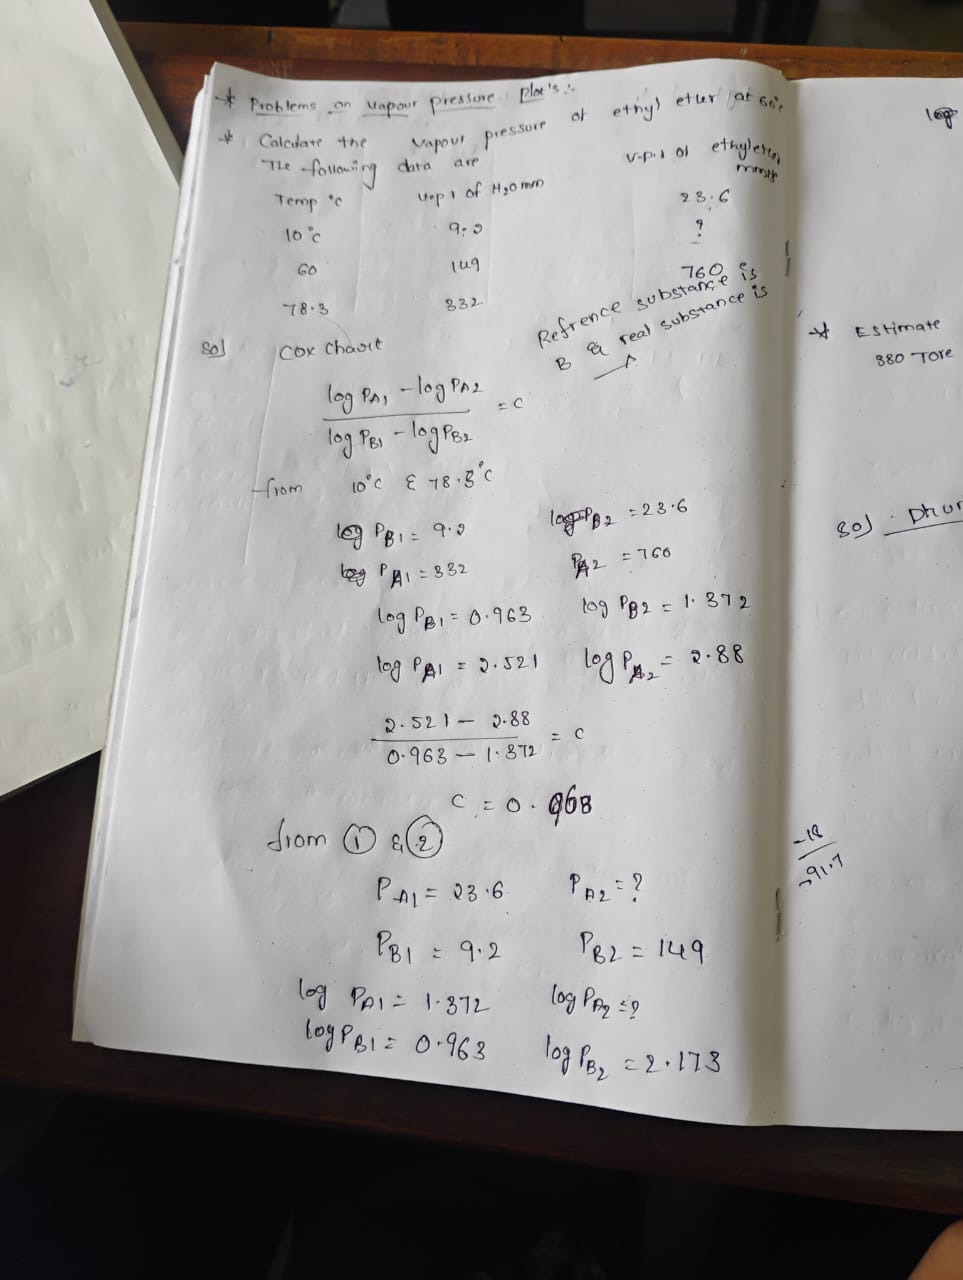 * Problems on vapour pressure plot's :
* Calculate the vapour pressure of ethyl ether at 60°c
The following data are
Temp °c   v.p. of H2O mm   v.p. of ethylether, mmHg
10°c   9.2   23.6
60   149   ?
78.3   332   760
Sol   Cox Chart
Refrence substance is
B & real substance is
A
log PA1 - log PA2
= C
log PB1 - log PB2
from 10°c & 78.3°c
PB1 = 9.2   PB2 = 23.6
PA1 = 332   PA2 = 760
log PB1 = 0.963   log PB2 = 1.372
log PA1 = 2.521   log PA2 = 2.88
2.521 - 2.88
= C
0.963 - 1.372
C = 0.968
from ① & ②
PA1 = 23.6   PA2 = ?
PB1 = 9.2   PB2 = 149
log PA1 = 1.372   log PA2 = ?
log PB1 = 0.963   log PB2 = 2.173
log
* Estimate
380 Tore
Sol :
-18